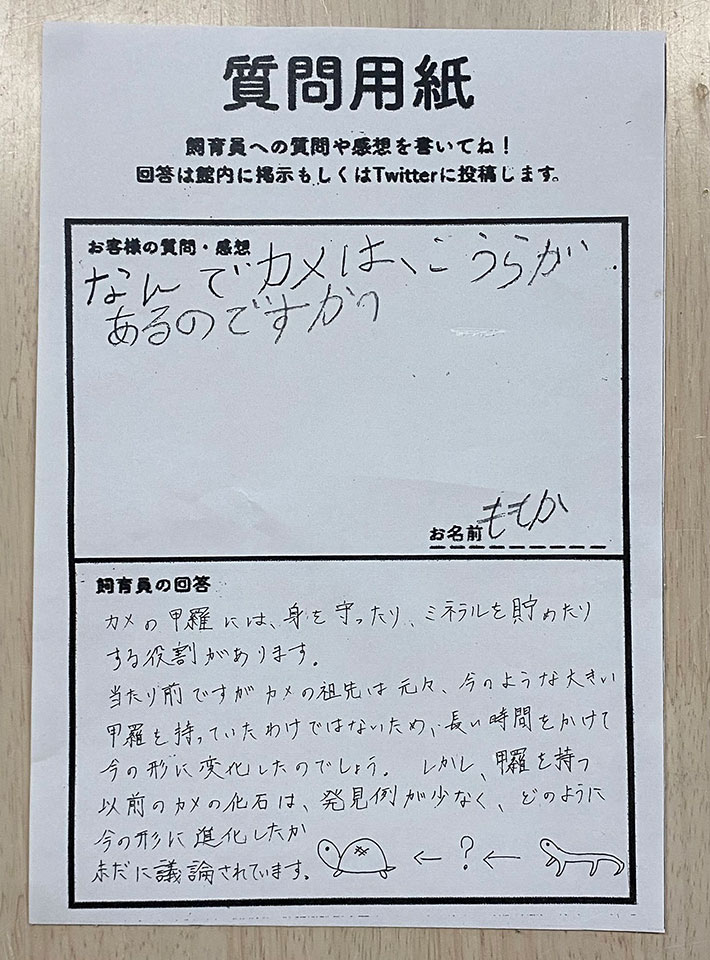 質問用紙
飼育員への質問や感想を書いてね！
回答は館内に掲示もしくはTwitterに投稿します。
お客様の質問・感想
なんでカメは、こうらが
あるのですか？
お名前 ももか
飼育員の回答
カメの甲羅には、身を守ったり、ミネラルを貯めたり
する役割があります。
当たり前ですがカメの祖先は元々、今のような大きい
甲羅を持っていたわけではないため、長い時間をかけて
今の形に変化したのでしょう。しかし、甲羅を持つ
以前のカメの化石は、発見例が少なく、どのように
今の形に進化したか
未だに議論されています。
?